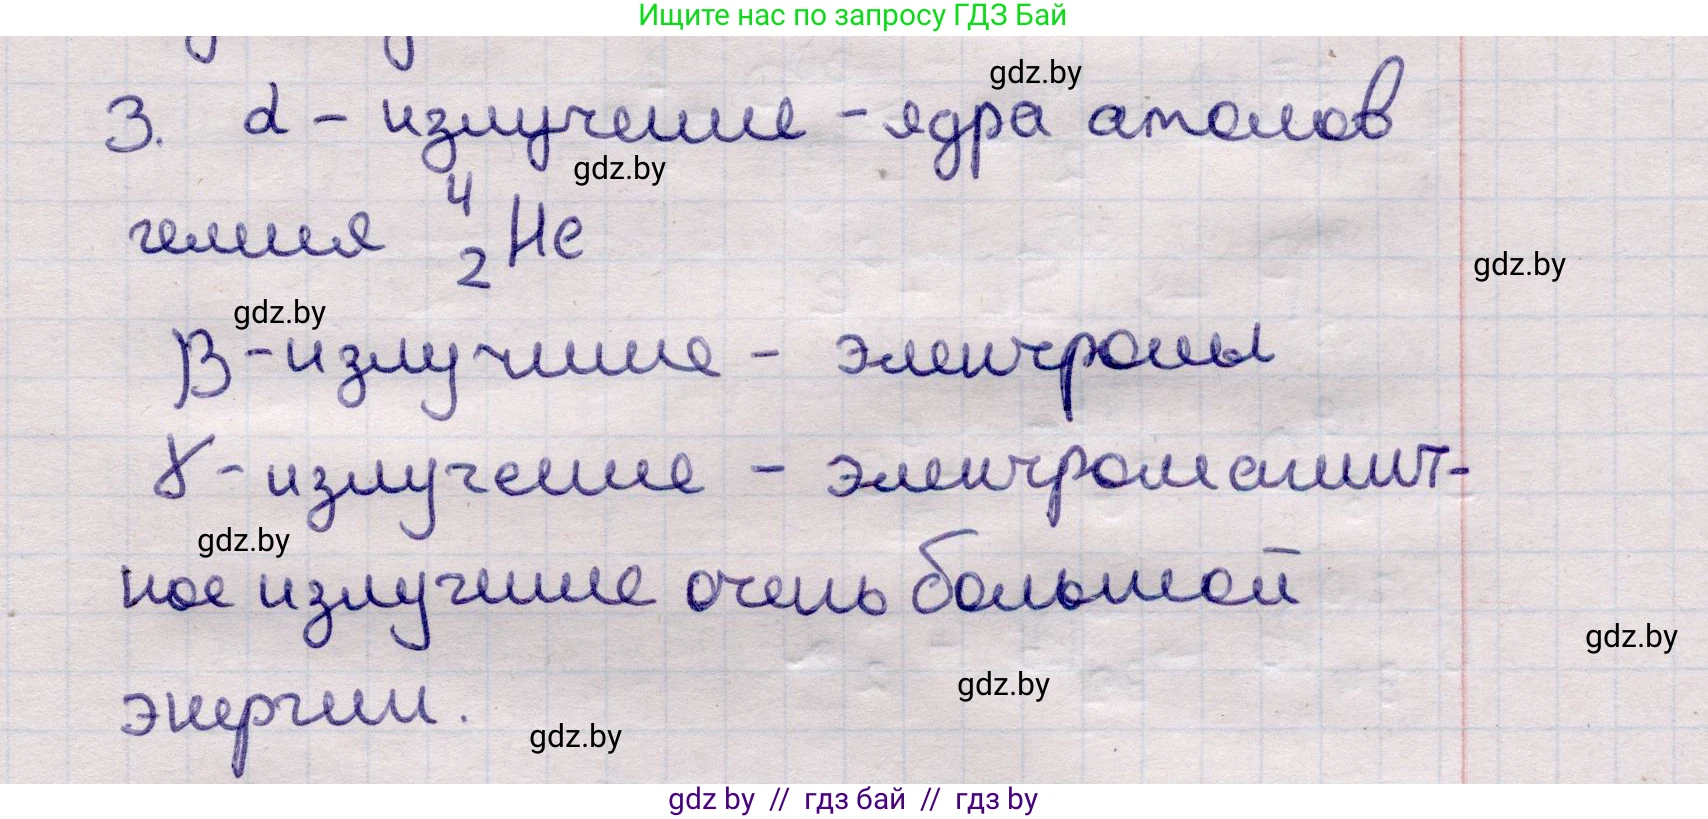 Ищите нас по запросу ГДЗ Бай
gdz.by
3. α - излучение - ядра атомов
gdz.by
гелия ⁴₂He
gdz.by
gdz.by
β - излучение - электроны
γ - излучение - электромагнит-
gdz.by
ное излучение очень большой
gdz.by
gdz.by
энергии.
gdz.by
gdz by // гдз бай // гдз by